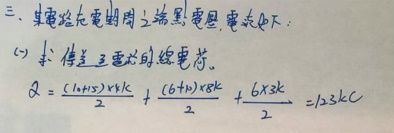 三、某電路在電時間之端點電壓,電流如下:
(一) 求傳送至電路的總電荷。
Q = (10+15)×4k/2 + (6+10)×8k/2 + 6×3k/2 = 123kC